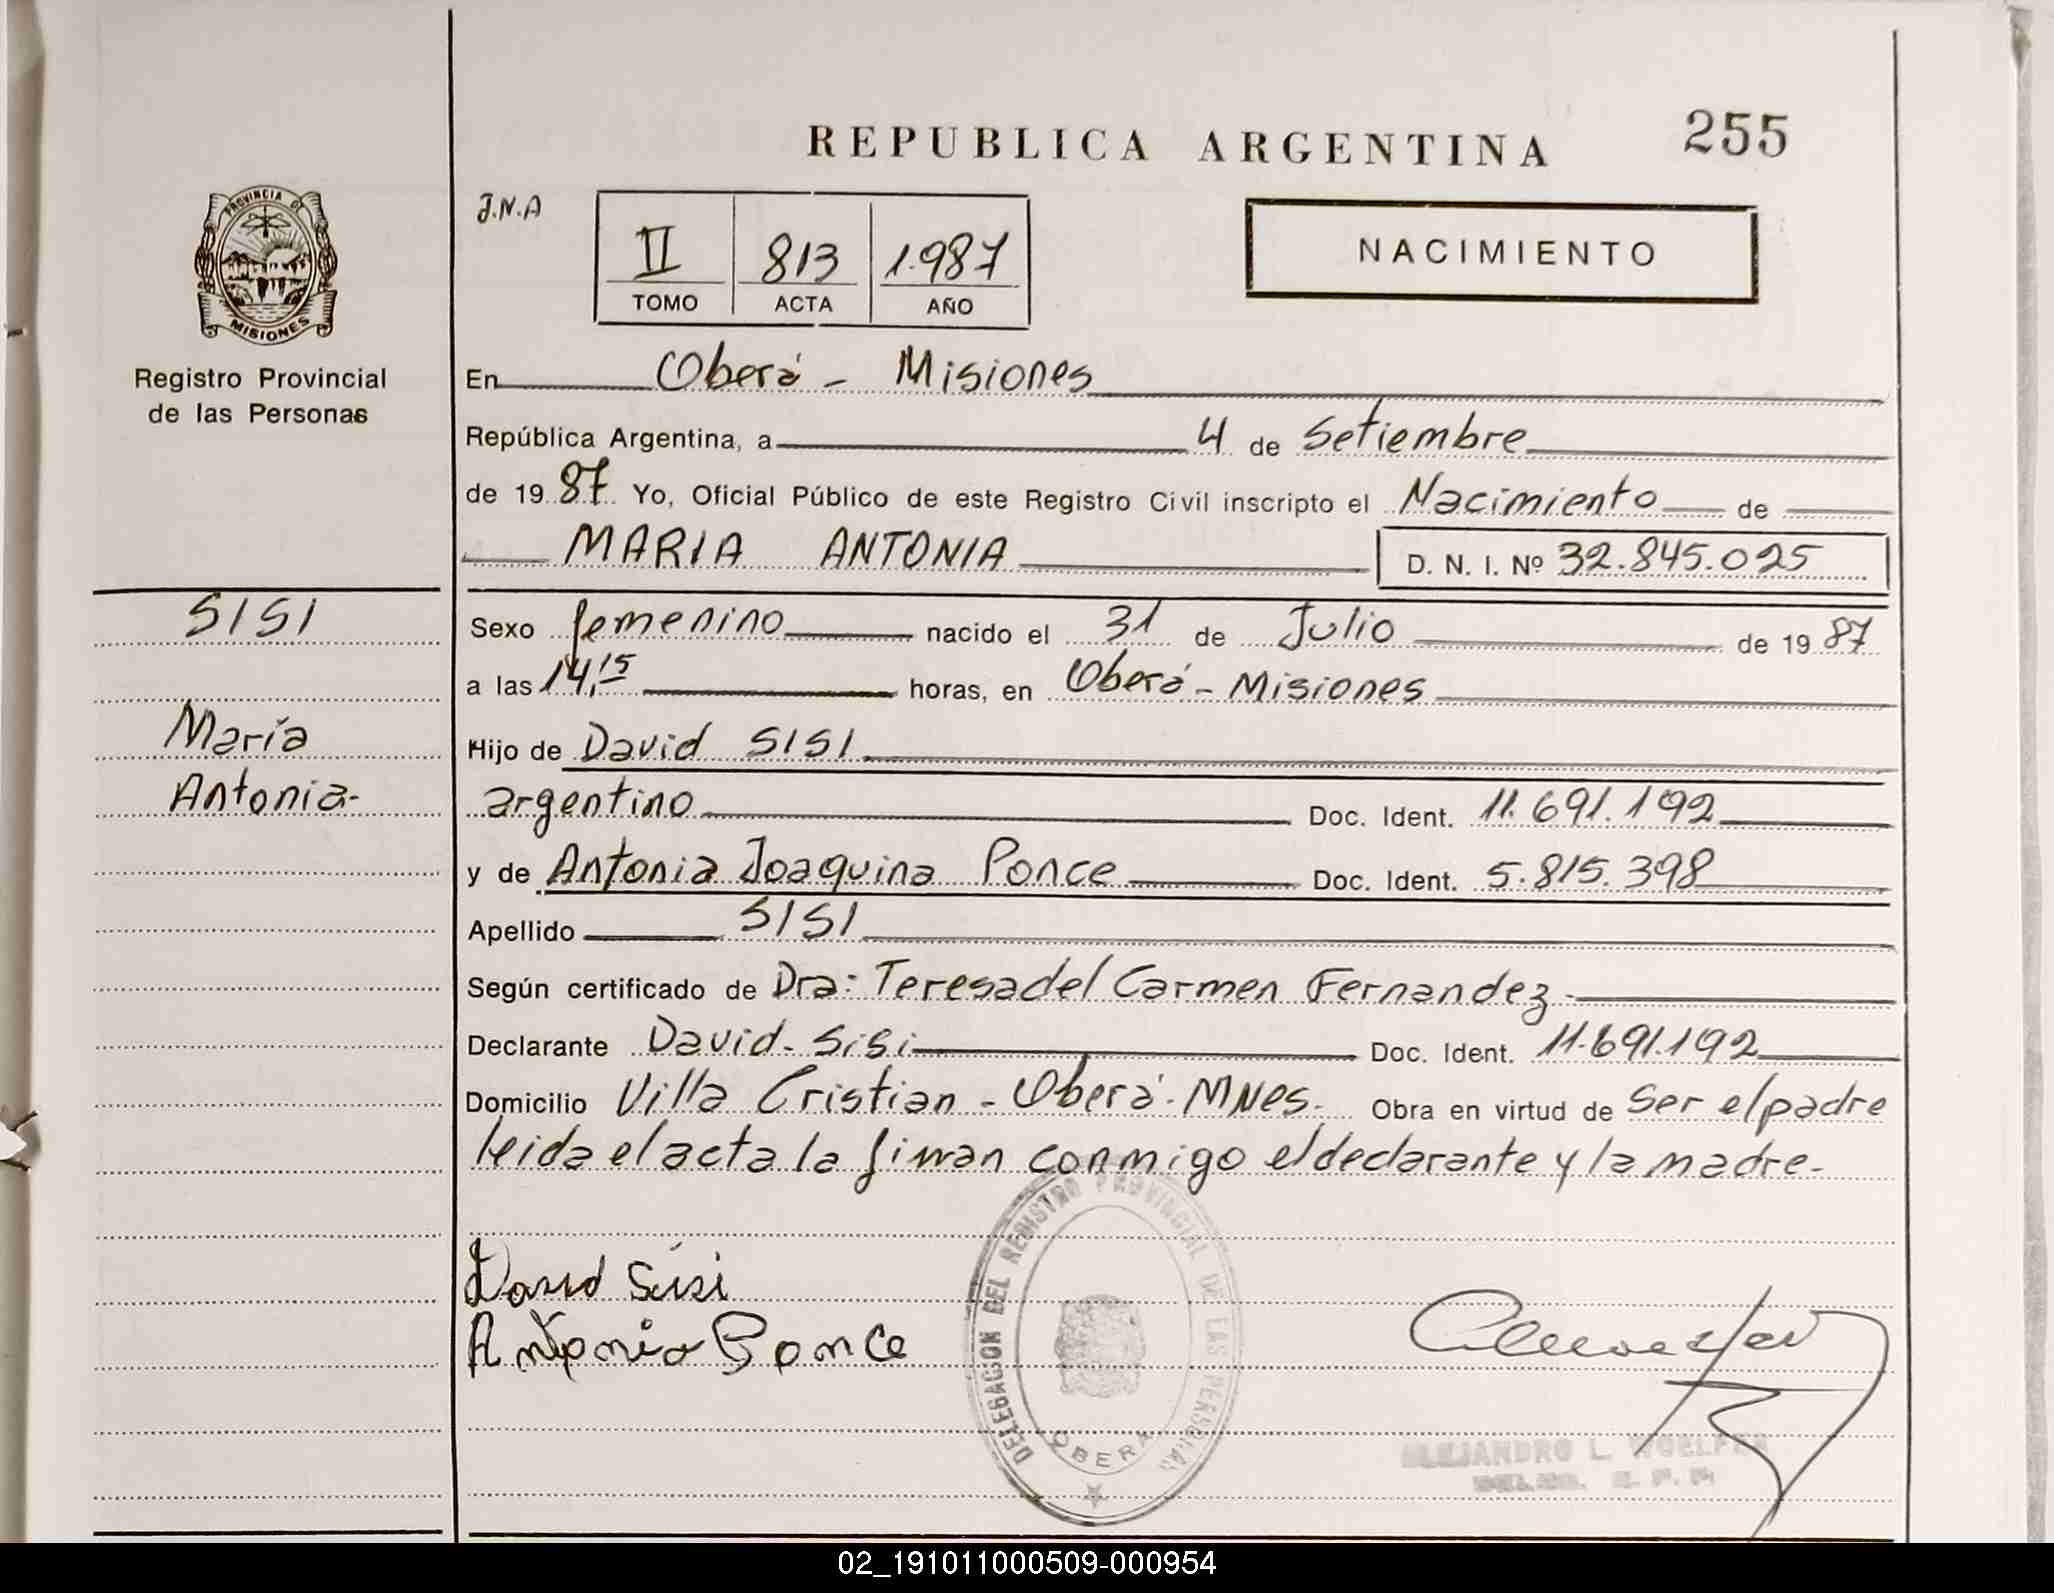 REPUBLICA ARGENTINA
255
PROVINCIA DE
MISIONES
Registro Provincial
de las Personas
J.N.A
II
813
1.987
TOMO
ACTA
AÑO
NACIMIENTO
En Oberá - Misiones
República Argentina, a 4 de Setiembre
de 19 87 Yo, Oficial Público de este Registro Civil inscripto el Nacimiento de
MARIA ANTONIA D. N. I. Nº 32.845.025
SISI
María
Antonia-
Sexo femenino nacido el 31 de Julio de 19 87
a las 14,15 horas, en Oberá - Misiones
Hijo de David SISI
argentino Doc. Ident. 11.691.192
y de Antonia Joaquina Ponce Doc. Ident. 5.815.398
Apellido SISI
Según certificado de Dra: Teresa del Carmen Fernandez-
Declarante David Sisi Doc. Ident. 11.691.192
Domicilio Villa Cristian - Oberá - MNes. Obra en virtud de Ser el padre
leida el acta la firman conmigo el declarante y la madre-
David Sisi
Antonia Ponce
DELEGACION DEL REGISTRO PROVINCIAL DE LAS PERSONAS
OBERA
ALEJANDRO L.
02_191011000509-000954